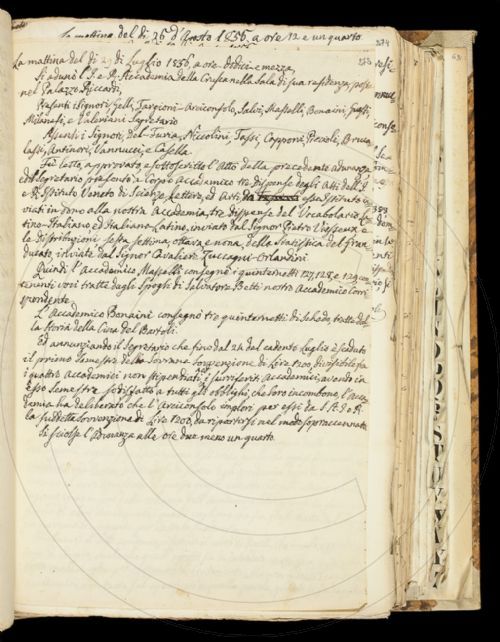 La mattina del dì 26 d'Agosto 1856, a ore 12 e un quarto
274
La mattina del dì 29 di Luglio 1856, a ore dodici e mezza,
273
Si adunò l'I. e R. Accademia della Crusca nella Sala di sua residenza, posta
nel Palazzo Riccardi,
Presenti i Signori, Gelli, Targioni Arciconsolo, Salvi, Masselli, Bonaini,
Milanesi, e Valeriani Segretario
Assenti i Signori, Del Furia, Niccolini, Tassi, Capponi, Becchi, Bruca-
lassi, Antinori, Vannucci, e Casella.
Fu letto, approvato, e sottoscritto l'Atto della precedente adunanza
Il Segretario presentò al Corpo Accademico tre dispense degli Atti dell'I.
e R. Istituto Veneto di Scienze, Lettere, ed Arti, da esso Istituto in-
viati in dono alla nostra Accademia, tre dispense del Vocabolario La-
tino-Italiano ed Italiano-Latino, inviato dal Signor Pietro Vieusseux, e
le distribuzioni sesta settima, ottava e nona, della Statistica del Gran-
ducato, inviate dal Signor Cavaliere Zuccagni-Orlandini.
Quindi l'Accademico Masselli consegnò i quinternetti 127, 128, e 129, con-
tenenti voci tratte dagli Spogli di Salvatore Betti nostro Accademico Corri-
spondente.
L'Accademico Bonaini consegnò tre quinternetti di Schede, tratte dal-
la Storia della Cina del Bartoli.
Ed annunziando il Segretario che fino dal 24 del cadente Luglio è scaduto
il primo Semestre della Sovrana Sovvenzione di Lire 1200, divisibile fra
i quattro Accademici non stipendiati, i surriferiti Accademici, avendo in
esso Semestre soddisfatto a tutti gli obblighi, che loro incombono, l'Acca-
demia ha deliberato che l'Arciconsolo implori per essi da S. A. I. e R.
la suddetta Sovvenzione di Lire 1200, da ripartirsi nel modo sopraccennato
Si sciolse l'Adunanza alle ore due meno un quarto.